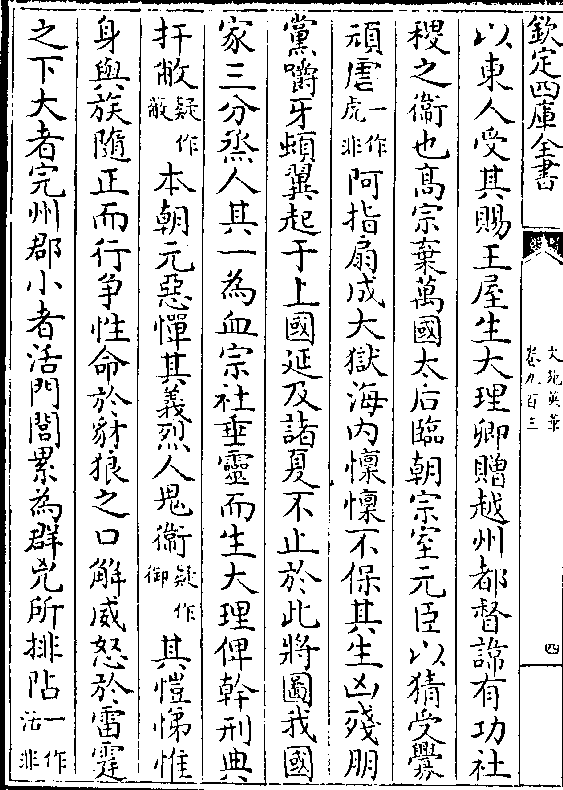 欽定四庫全書
文苑英華
卷九百三
四
以東人受其賜王屋生大理卿贈越州都督諦有功社
稷之衞也髙宗棄萬國太后臨朝宗室元臣以猜受釁
頑虐一作虎非阿指扇成大獄海内懍懍不保其生凶殘朋
黨嚼牙蜵翼起于上國延及諸夏不止於此將圖我國
家三分烝人其一為血宗社垂靈而生大理俾幹刑典
扞敝疑作敵本朝元惡憚其義烈人鬼衞疑作御其愷悌惟
身與族隨正而行争性命於豺狼之口解威怒於雷霆
之下大者完州郡小者活門閭累為群兇所排阽一作沾非